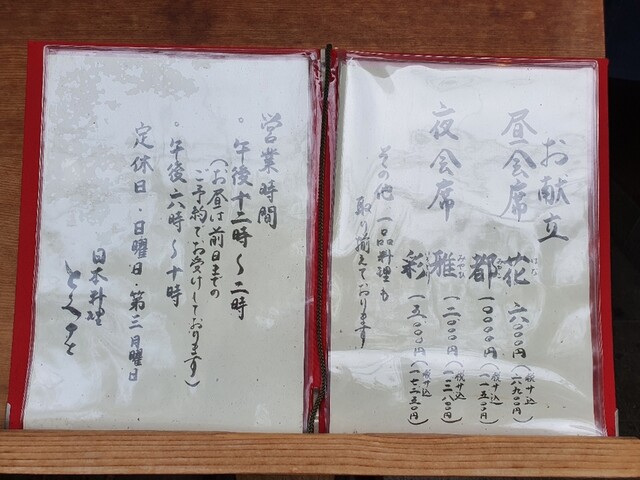 お献立
昼会席 花 六〇〇〇円(税サ込 六九〇〇円)
都 一〇〇〇〇円(税サ込 一一五〇〇円)
夜会席 雅 一二〇〇〇円(税サ込 一三八〇〇円)
彩 一五〇〇〇円(税サ込 一七二五〇円)
その他 一品料理も
取り揃えております
営業時間
。午後十二時〜二時
(お昼は前日までの
ご予約でお受けしております)
。午後六時〜十時
定休日・日曜日・第三月曜日
日本料理